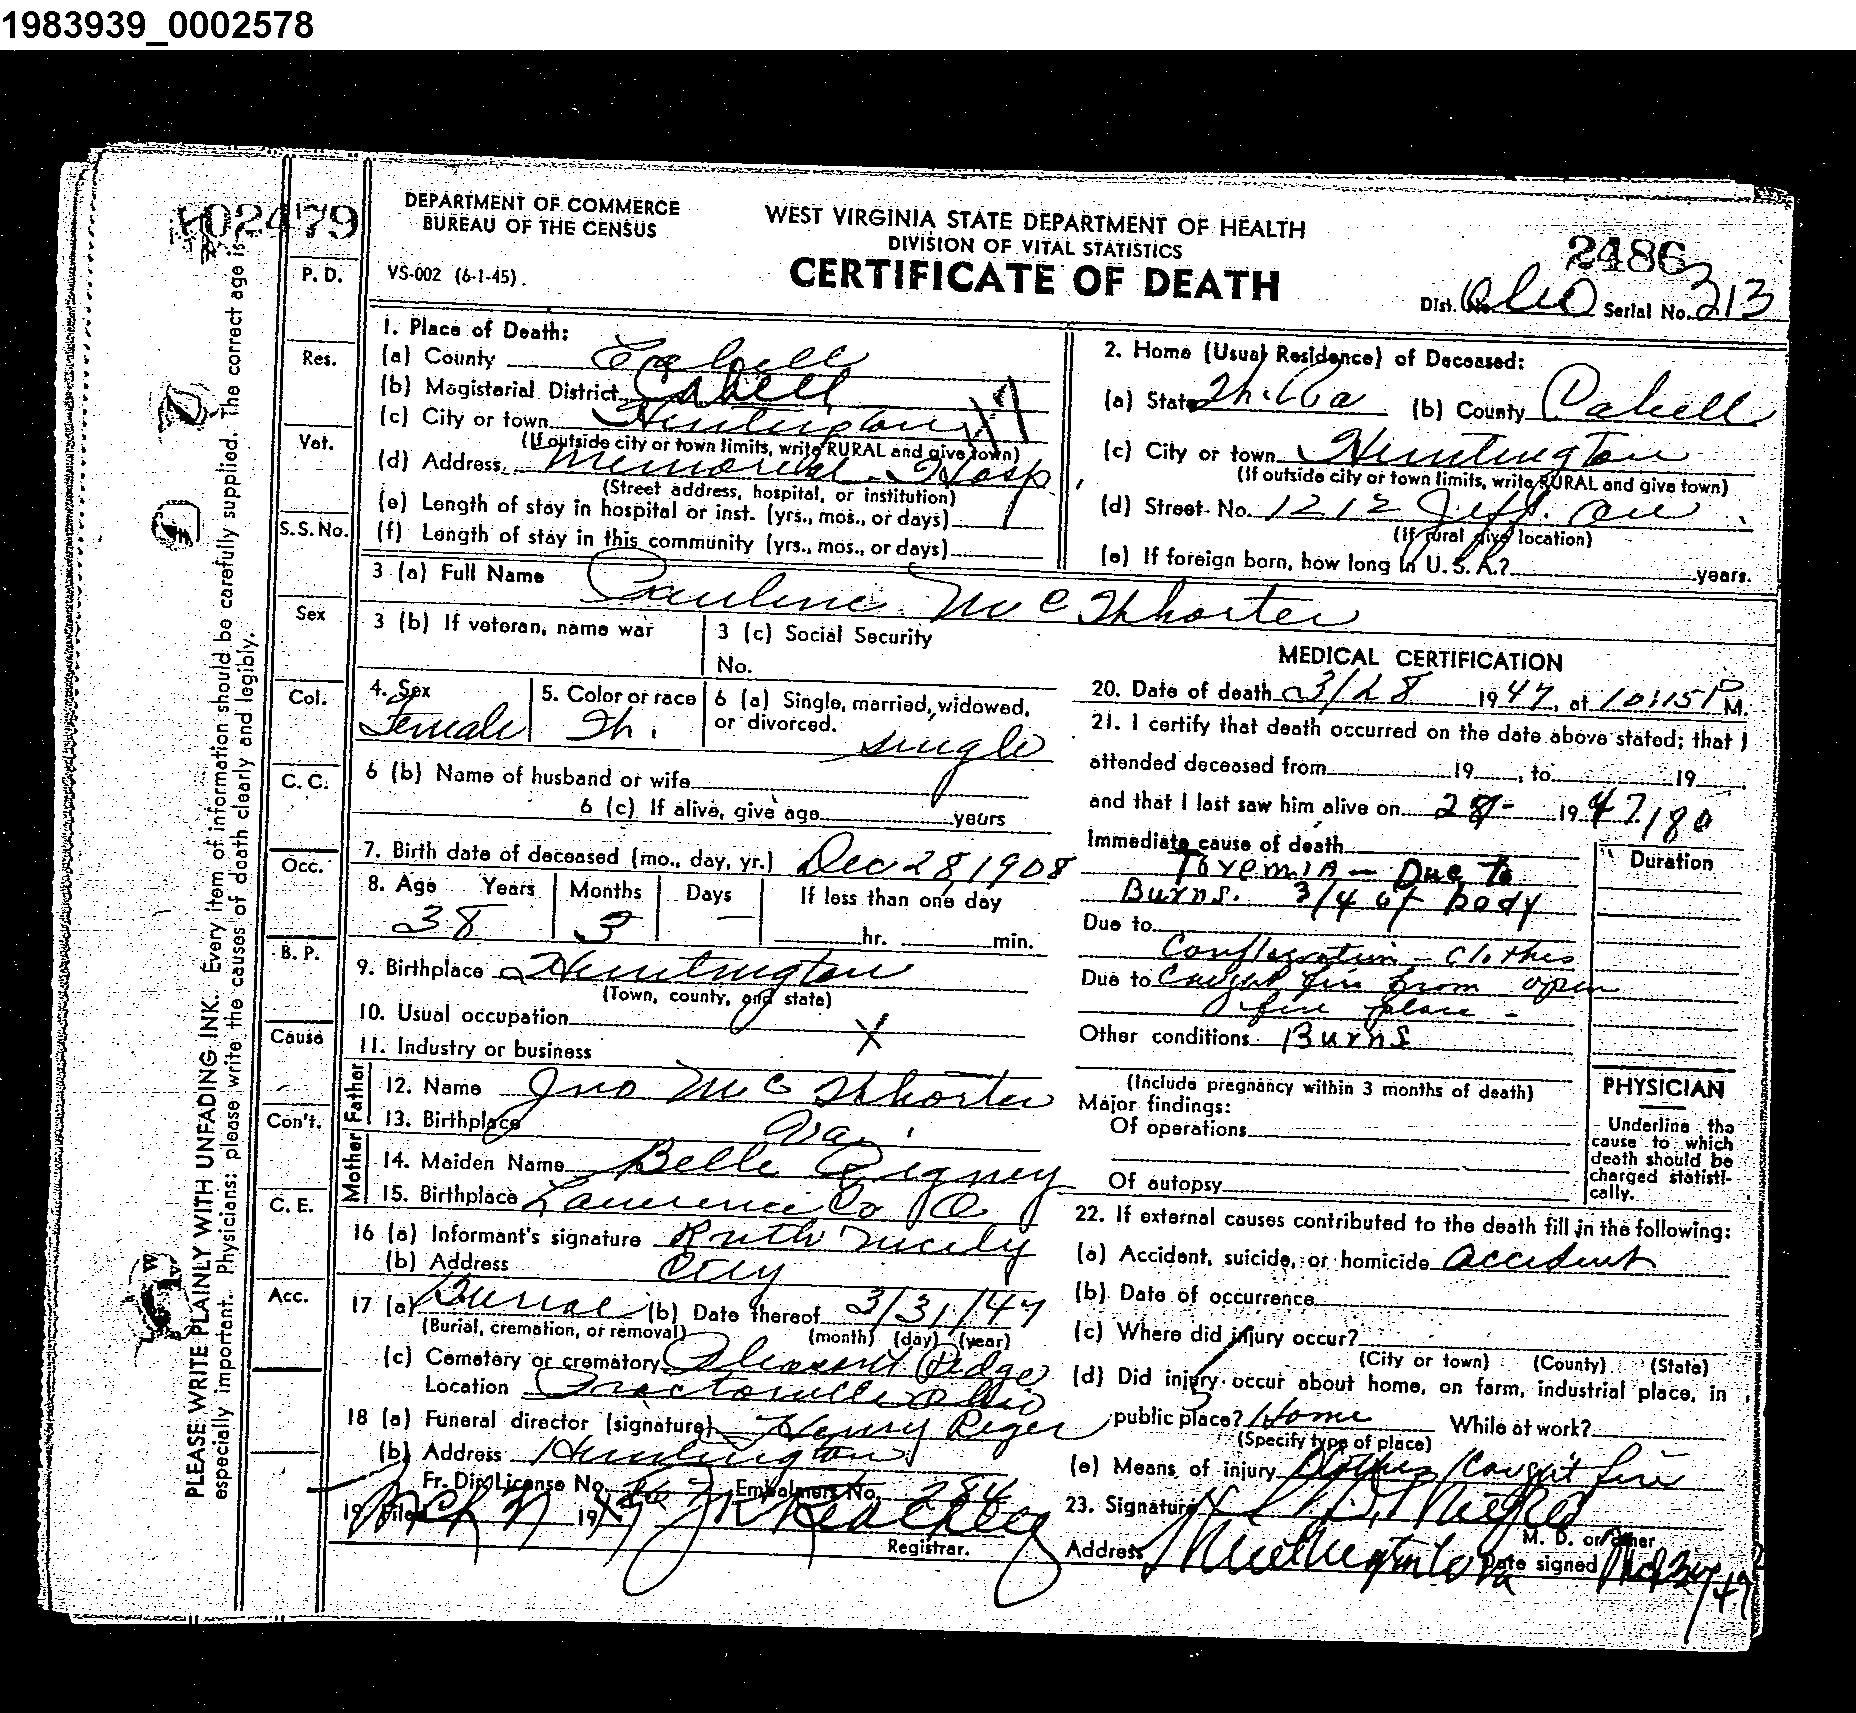 1983939_0002578
02479
DEPARTMENT OF COMMERCE
BUREAU OF THE CENSUS
VS-002 (6-1-45).
WEST VIRGINIA STATE DEPARTMENT OF HEALTH
DIVISION OF VITAL STATISTICS
CERTIFICATE OF DEATH
2486
Dist. No. Serial No. 213
PLEASE WRITE PLAINLY WITH UNFADING INK. Every item of information should be carefully supplied. The correct age is
especially important. Physicians: please write the causes of death clearly and legibly.
P. D.
Res.
Vet.
S.S. No.
Sex
Col.
C. C.
Occ.
B. P.
Cause
Con't.
C. E.
Acc.
1. Place of Death:
(a) County Cabell
(b) Magisterial District
(c) City or town Huntington
(If outside city or town limits, write RURAL and give town)
(d) Address Memorial Hosp
(Street address, hospital, or institution)
(e) Length of stay in hospital or inst. (yrs., mos., or days)
(f) Length of stay in this community (yrs., mos., or days)
2. Home (Usual Residence) of Deceased:
(a) State W. Va (b) County Cabell
(c) City or town Huntington
(If outside city or town limits, write RURAL and give town)
(d) Street No. 1212 Jeff. Ave
(If rural give location)
(e) If foreign born, how long in U. S. A.? years.
3 (a) Full Name Pauline McWhorter
3 (b) If veteran, name war
3 (c) Social Security
No.
4. Sex Female
5. Color or race Wh.
6 (a) Single, married, widowed,
or divorced. single
6 (b) Name of husband or wife
6 (c) If alive, give age years
7. Birth date of deceased (mo., day, yr.) Dec 28, 1908
8. Age Years Months Days If less than one day
38 3 — hr. min.
9. Birthplace Huntington
(Town, county, and state)
10. Usual occupation X
11. Industry or business
Father
12. Name Jno McWhorter
13. Birthplace Va.
Mother
14. Maiden Name Belle Rigney
15. Birthplace Lawrence Co O.
16 (a) Informant's signature Ruth Nicely
(b) Address City
17 (a) Burial (b) Date thereof 3/31/47
(Burial, cremation, or removal) (month) (day) (year)
(c) Cemetery or crematory Pleasant Ridge
Location Proctorville Ohio
18 (a) Funeral director (signature) Henry Reger
(b) Address Huntington
Fr. Dir. License No. Embalmers No. 284
19 Filed 19
Registrar.
MEDICAL CERTIFICATION
20. Date of death 3/28 1947, at 10:15 P M.
21. I certify that death occurred on the date above stated; that I
attended deceased from 19 , to 19
and that I last saw him alive on 28- 1947
Immediate cause of death
Duration
Toxemia — Due to
Burns. 3/4 of body
Due to
Conflagration — clothes
Due to caught fire from open
fire place -
Other conditions Burns
(Include pregnancy within 3 months of death)
Major findings:
Of operations
Of autopsy
PHYSICIAN
Underline the
cause to which
death should be
charged statisti-
cally.
22. If external causes contributed to the death fill in the following:
(a) Accident, suicide, or homicide accident
(b) Date of occurrence
(c) Where did injury occur?
(City or town) (County) (State)
(d) Did injury occur about home, on farm, industrial place, in
public place? Home While at work?
(Specify type of place)
(e) Means of injury Clothes caught fire
23. Signature
M. D. or other
Address Huntington W Va Date signed